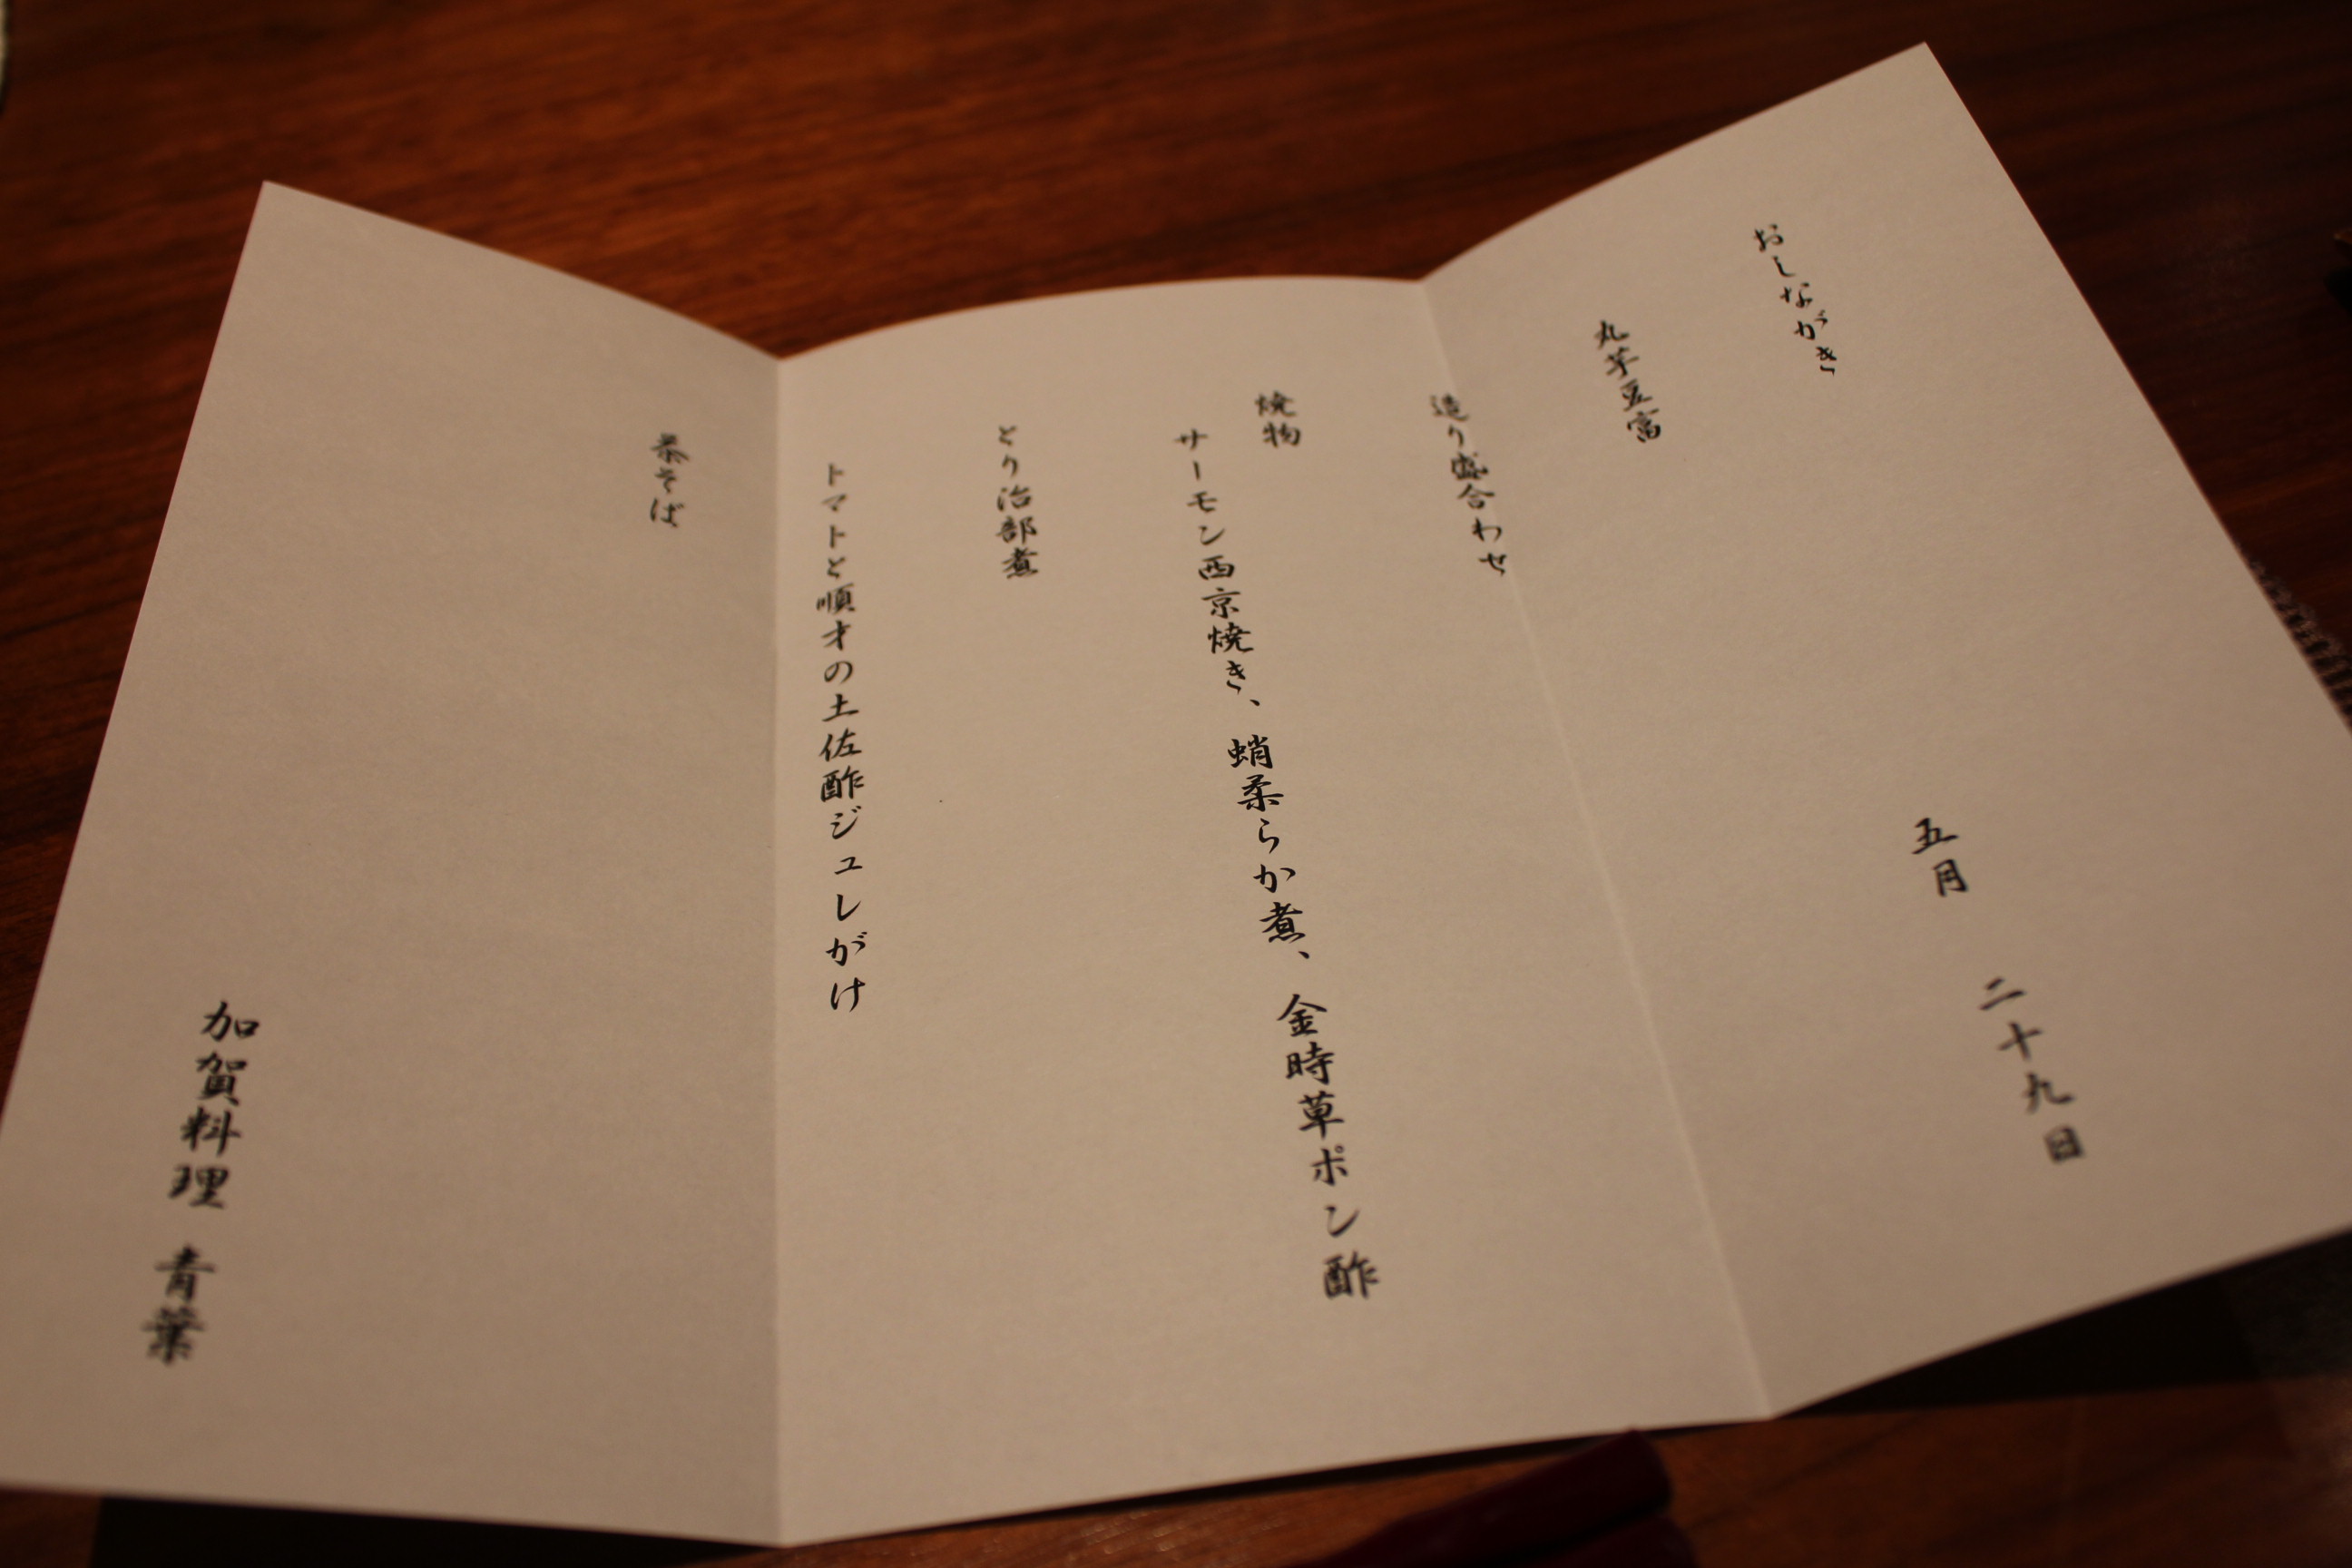 おしながき
五月 二十九日
丸芋豆富
造り盛合わせ
焼物
サーモン西京焼き、蛸柔らか煮、金時草ポン酢
とり治部煮
トマトと順才の土佐酢ジュレがけ
茶そば
加賀料理 青葉